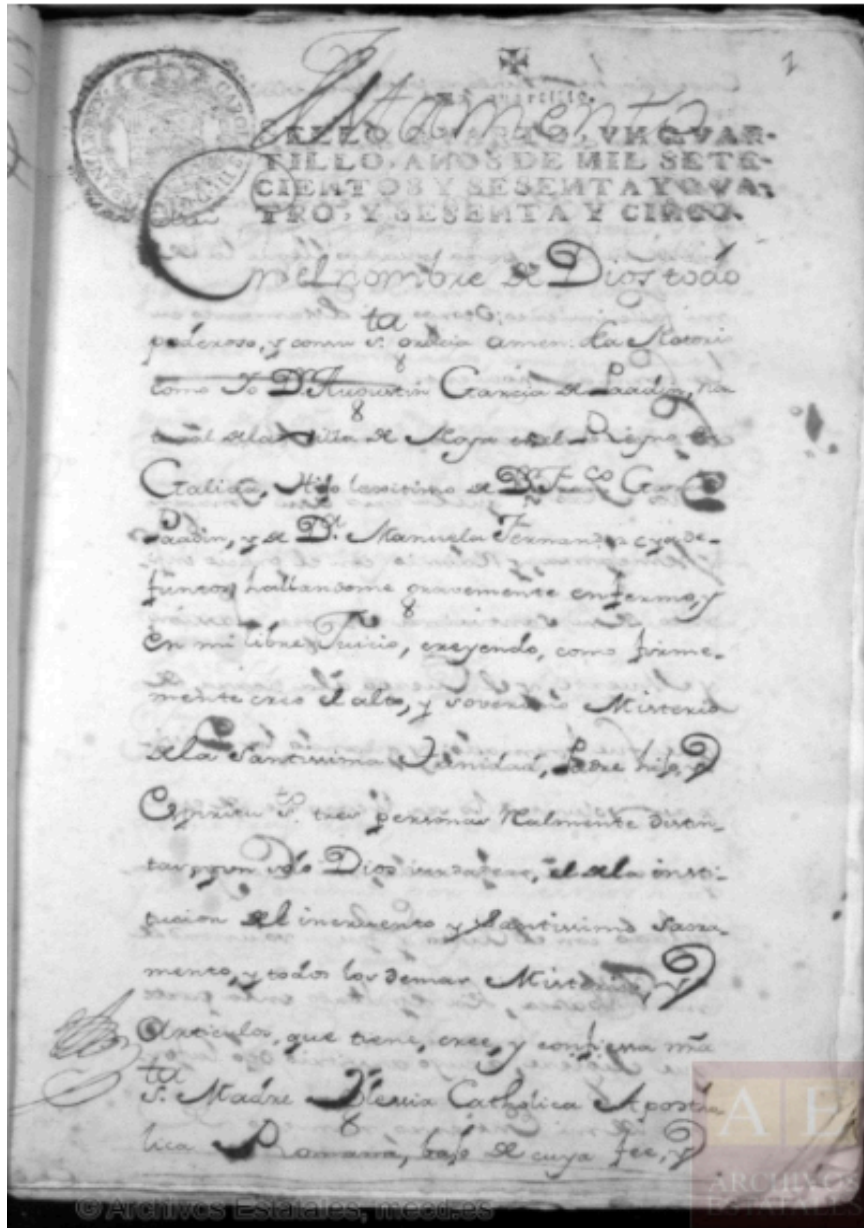 2
Testamento
Un quartillo.
SELLO QUARTO, VN QVAR-
TILLO, AÑOS DE MIL SETE-
CIENTOS Y SESENTA Y QVA-
TRO, Y SESENTA Y CINCO.
En el nombre de Dios todo
poderoso, y con su S.ta gracia amen. Sea Notorio
como Yo D.n Augustin Garcia de Paadin, na
tural de la Villa de en el Reyno de
Galicia, Hijo lexitimo de D.n Fran.co Garcia
Paadin, y de D.a Manuela Fernandez ya de-
funtos, hallandome gravemente enfermo, y
en mi libre Juicio, creyendo, como firme-
mente creo el alto, y soverano Misterio
de la Santissima Trinidad, Padre hijo, y
Espiritu S.to tres personas realmente distin-
tas, y un solo Dios verdadero, el de la insti-
tucion del incruento y Santissimo Sacra-
mento, y todos los demas Misterios, y
Articulos, que tiene, cree, y confiessa nra
S.ta Madre Yglesia Catholica Aposto-
lica Romana, bajo de cuya fee, y
AE
ARCHIVOS
ESTATALES
© Archivos Estatales, mecd.es